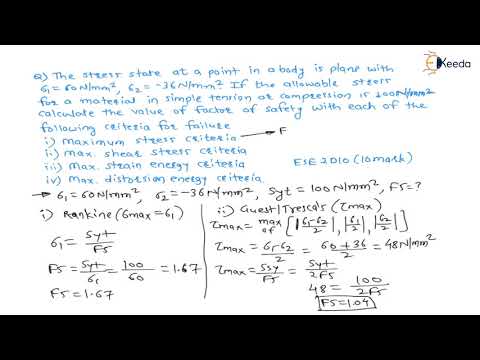 Keeda
Q) The stress state at a point in a body is plane with
σ1 = 60N/mm², σ2 = -36N/mm² If the allowable stress
for a material in simple tension or compression is 100N/mm²
calculate the value of factor of safety with each of the
following criteria for failure
i) maximum stress criteria → F
ii) max shear stress criteria
iii) max. strain energy criteria
iv) Max. distorsion energy criteria
ESE 2010 (10mark)
→ σ1 = 60N/mm², σ2 = -36N/mm², Syt = 100N/mm², FS = ?
i) Rankine (σmax = σ1)
σ1 = Syt/FS
FS = Syt/σ1 = 100/60 = 1.67
FS = 1.67
ii) Guest/Tresca's (τmax)
τmax = max of [|σ1-σ2/2|, |σ1/2|, |σ2/2|]
τmax = σ1-σ2/2 = 60+36/2 = 48N/mm²
τmax = Ssy/FS = Syt/2FS
48 = 100/2FS
FS = 1.04